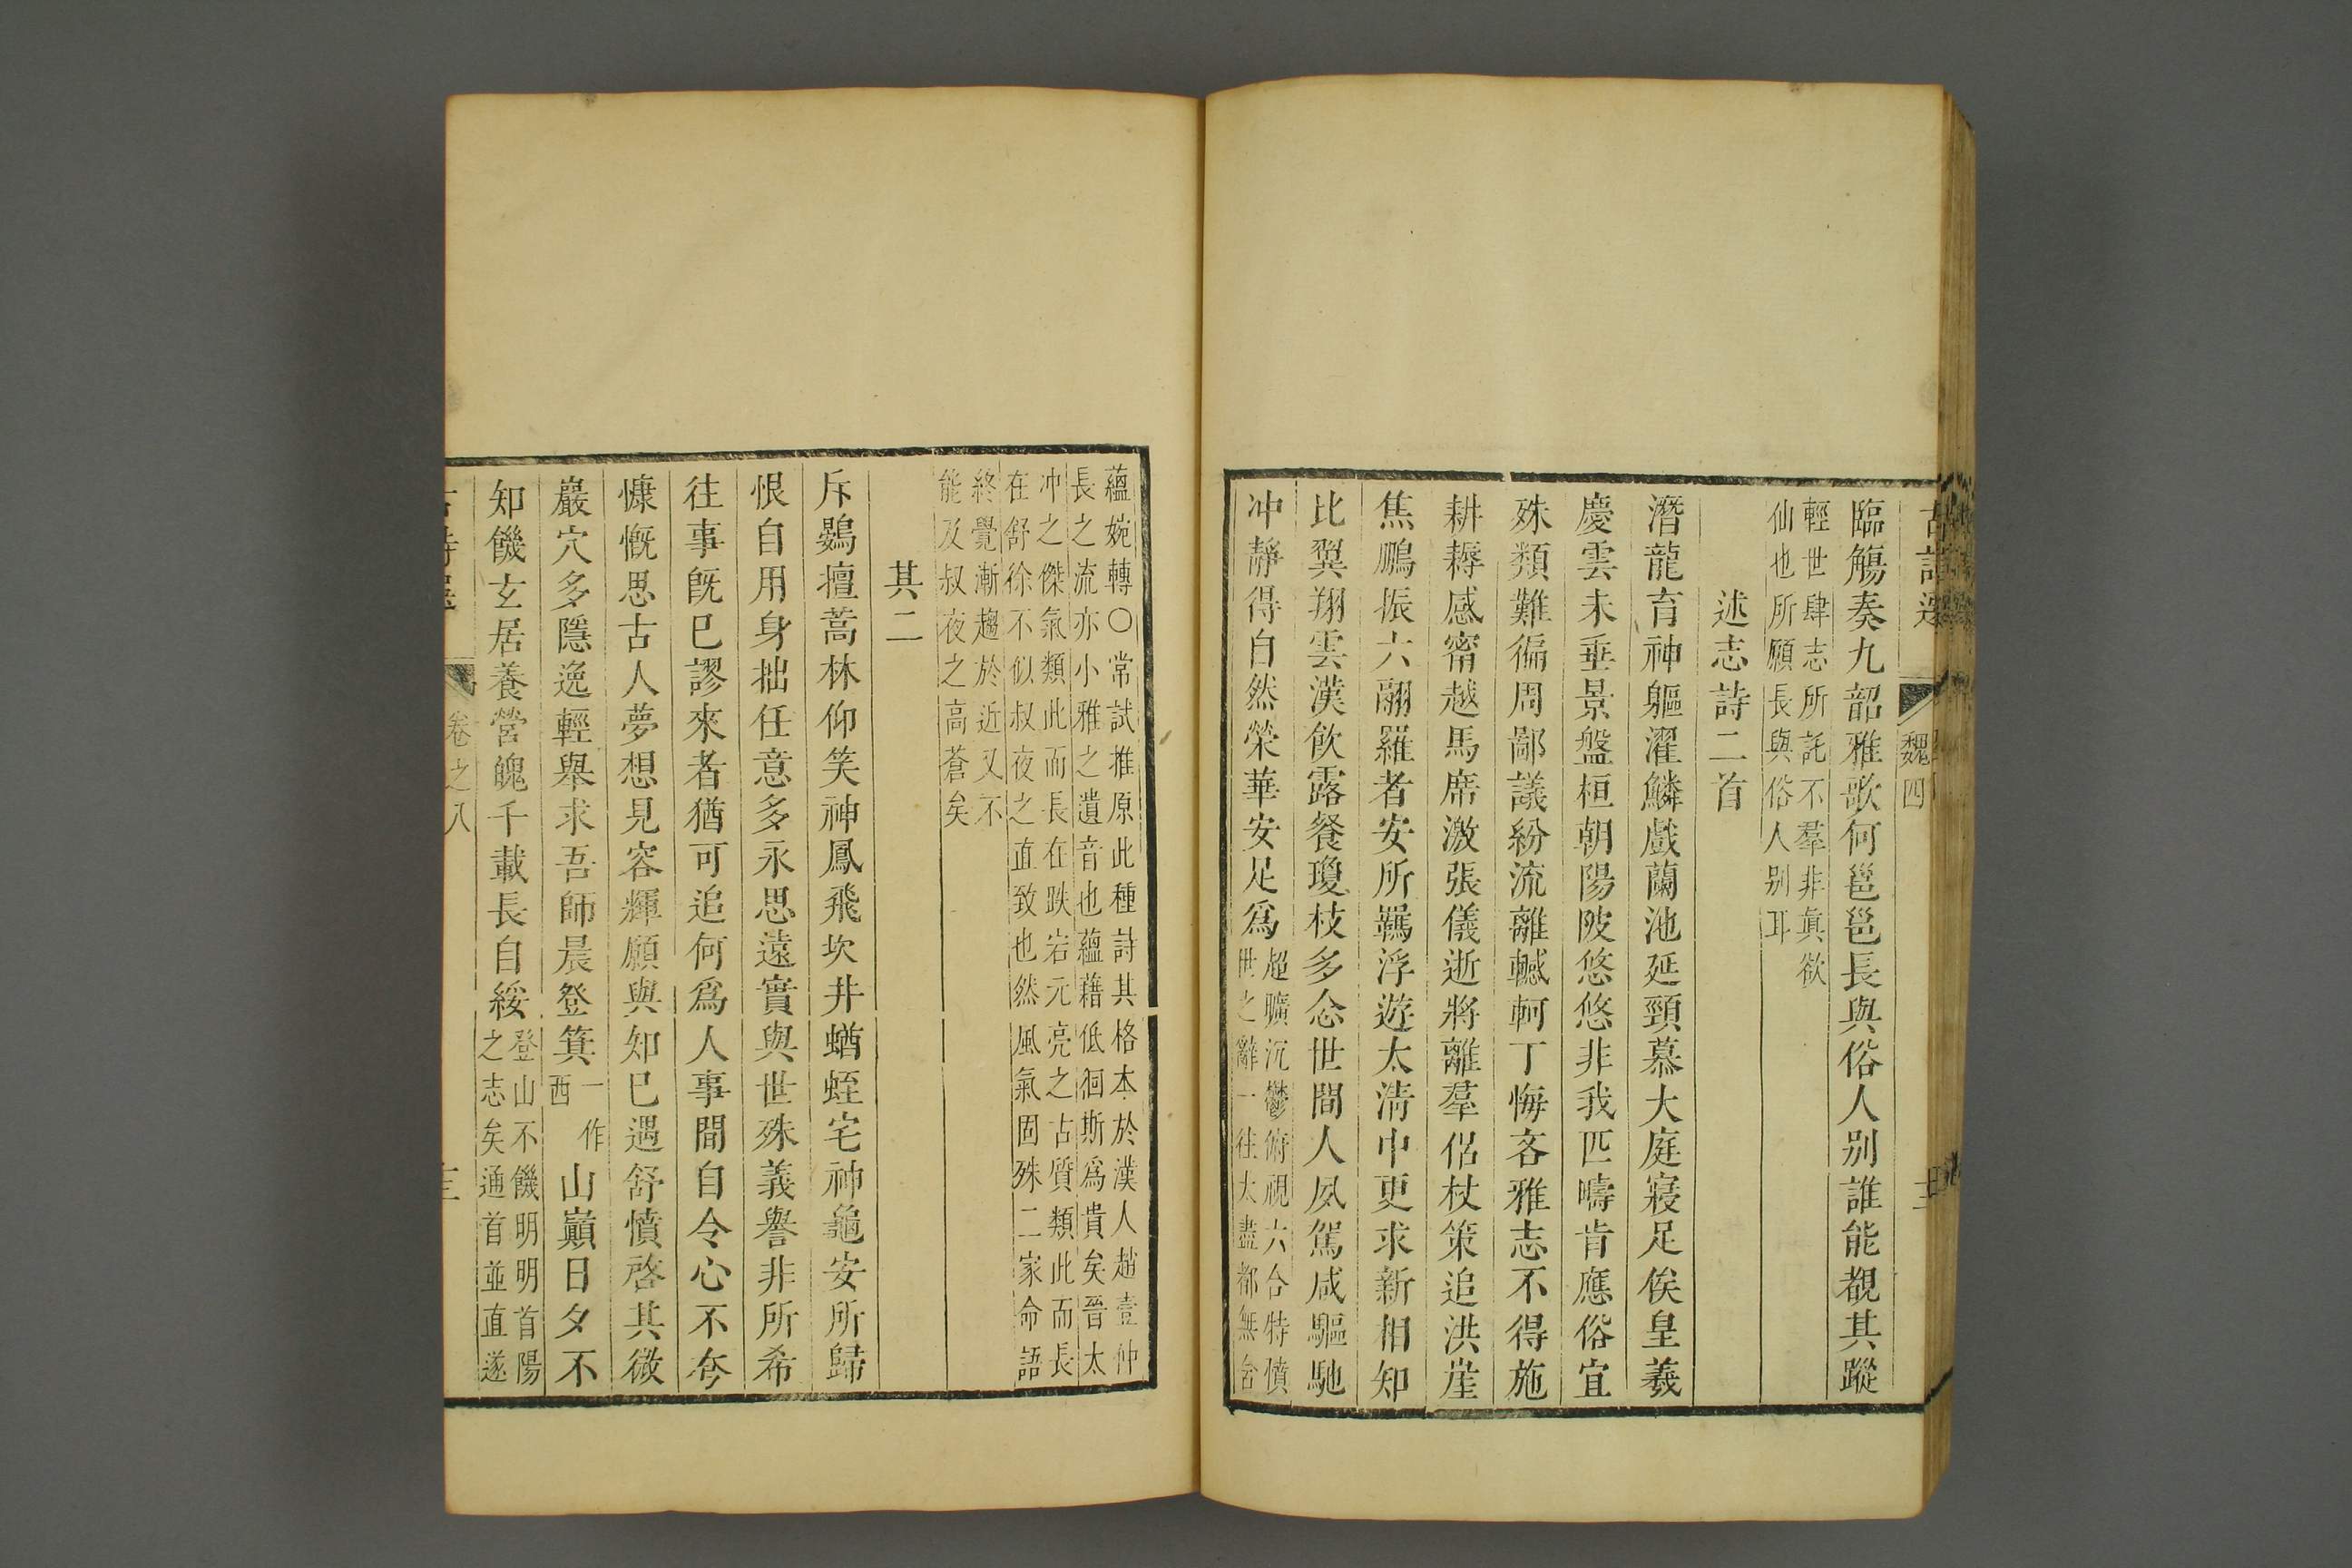 魏四
臨觴奏九韶雅歌何邕邕長與俗人别誰能覩其蹤
輕世肆志所託不羣非眞欲
仙也所願長與俗人别耳
述志詩二首
潛龍育神軀濯鱗戲蘭池延頸慕大庭寢足俟皇羲
慶雲未垂景盤桓朝陽陂悠悠非我匹疇肯應俗宜
殊類難徧周鄙議紛流離轗軻丁悔吝雅志不得施
耕耨感甯越馬席激張儀逝將離羣侶杖策追洪崖
焦鵬振六翮羅者安所羈浮遊太淸中更求新相知
比翼翔雲漢飮露餐瓊枝多念世間人夙駕咸驅馳
冲靜得自然榮華安足爲
超曠沉鬱俯視六合特憤
世之辭一往太盡都無含
蘊婉轉〇常試推原此種詩其格本於漢人趙壹仲
長之流亦小雅之遺音也蘊藉低徊斯爲貴矣晉太
冲之傑氣類此而長在跌宕元亮之古質類此而長
在舒徐不似叔夜之直致也然風氣固殊二家命語
終覺漸趨於近又不
能及叔夜之高蒼矣
其二
斥鷃擅蒿林仰笑神鳳飛坎井蝤蛭宅神龜安所歸
恨自用身拙任意多永思遠實與世殊義譽非所希
往事旣已謬來者猶可追何爲人事間自令心不夷
慷慨思古人夢想見容輝願與知已遇舒憤啓其微
巖穴多隱逸輕舉求吾師晨登箕一作西山巓日夕不
知饑玄居養營魄千載長自綏
登山不饑明明首陽
之志矣通首並直遂
卷之八